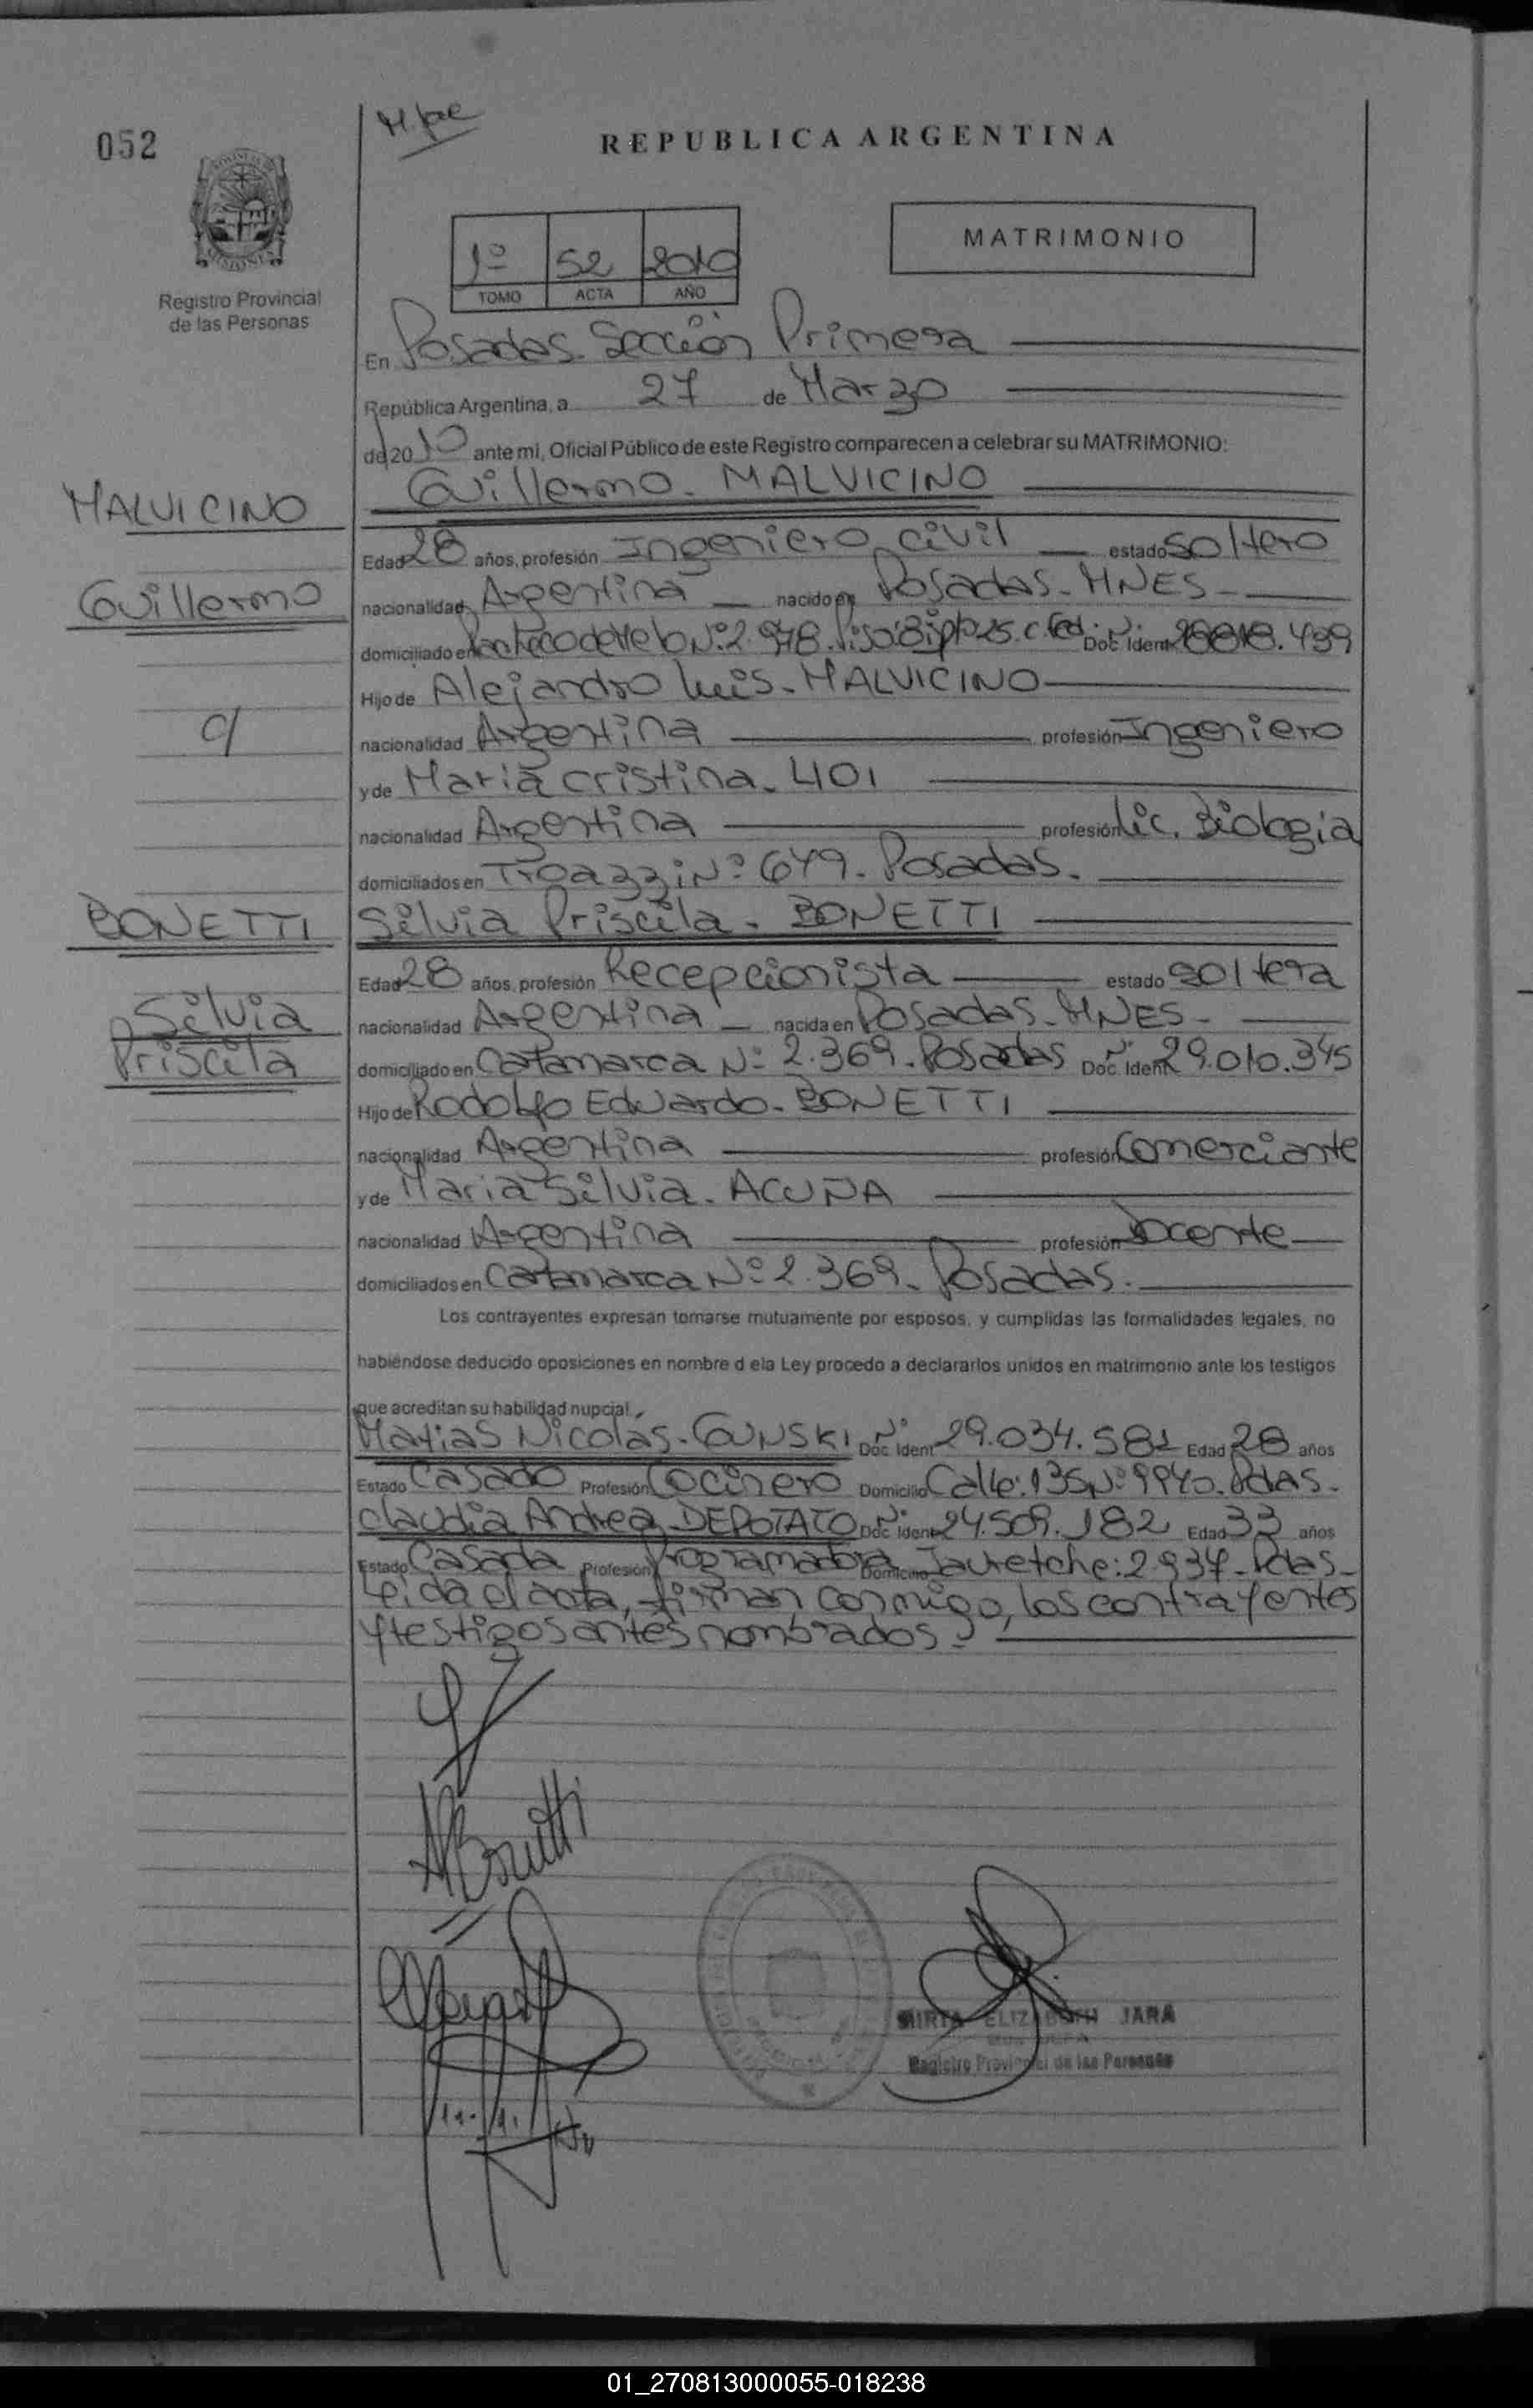 052
REPUBLICA ARGENTINA
MATRIMONIO
1º 52 2010
TOMO ACTA AÑO
Registro Provincial
de las Personas
En Posadas. Sección Primera
República Argentina, a 27 de Marzo
de 2010 ante mi, Oficial Público de este Registro comparecen a celebrar su MATRIMONIO:
MALVICINO
Guillermo. MALVICINO
Edad 28 años, profesión Ingeniero civil estado soltero
Guillermo
nacionalidad Argentina nacido en Posadas. MNES.
domiciliado en Nº 2.978. Doc. Ident. .439
Hijo de Alejandro Luis. MALVICINO
c/
nacionalidad Argentina profesión Ingeniero
y de Maria Cristina. LLOI
nacionalidad Argentina profesión Lic. Biologia
domiciliados en Nº 649. Posadas.
BONETTI
Silvia Priscila. BONETTI
Edad 28 años, profesión Recepcionista estado soltera
Silvia
nacionalidad Argentina nacida en Posadas. MNES.
Priscila
domiciliado en Catamarca Nº 2.369. Posadas Doc. Ident. Nº 29.010.345
Hijo de Rodolfo Eduardo. BONETTI
nacionalidad Argentina profesión Comerciante
y de Maria Silvia. ACUÑA
nacionalidad Argentina profesión Docente
domiciliados en Catamarca Nº 2.369. Posadas.
Los contrayentes expresan tomarse mutuamente por esposos, y cumplidas las formalidades legales, no
habiéndose deducido oposiciones en nombre d ela Ley procedo a declararlos unidos en matrimonio ante los testigos
que acreditan su habilidad nupcial.
Matias Nicolas. GUNSKI Doc. Ident. Nº 29.034.581 Edad 28 años
Estado Casado Profesión Cocinero Domicilio Calle: 135 Nº 9940. Pdas.
Claudia Andrea DEPOTATO Doc. Ident. Nº 24.509.182 Edad 33 años
Estado Casada Profesión Programadora Domicilio Jauretche: 2.937. Pdas.
Leida el acta, firman conmigo, los contrayentes
y testigos antes nombrados.
MIRTA ELIZABETH JARA
Registro Provincial de las Personas
01_270813000055-018238